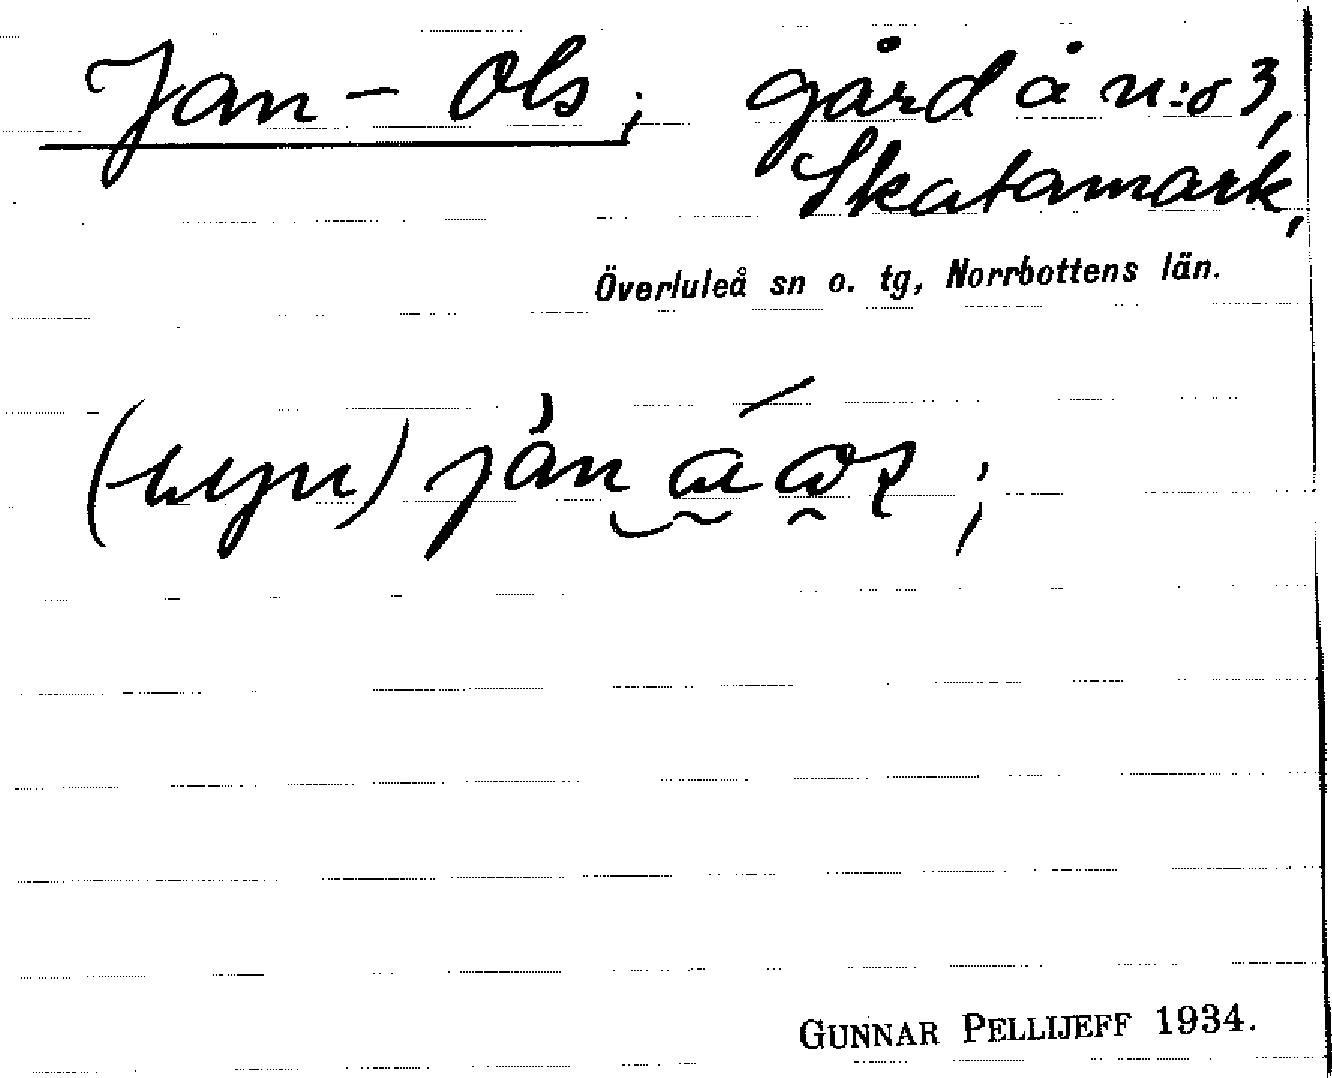 Jan-Ols; gård å n:o 3,
Skatamark,
Överluleå sn o. tg, Norrbottens län.
GUNNAR PELLIJEFF 1934.